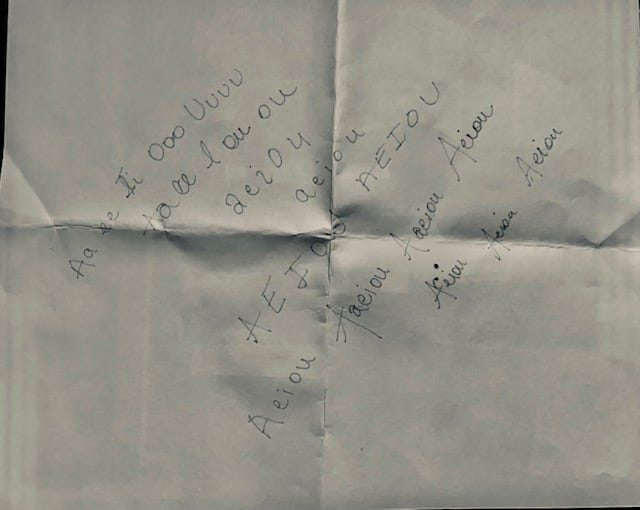 Aa ee Ii Ooo Uuuu
Aa œ I au ou
aeiou
aeiou
AEIOU
AEIOU
Aeiou
Aaeiou
Aaeiou
Aeiou
Aeiou
Aeiou
Aeiou